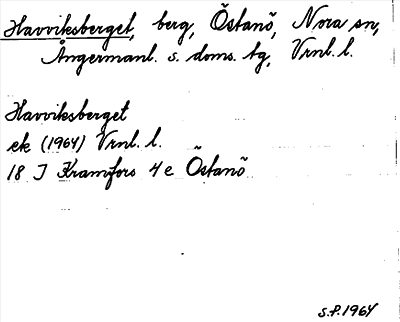 Havviksberget, berg, Östanö, Nora sn,
Ångermanl. s. doms. tg, Vrnl. l.
Havviksberget
ek (1964) Vrnl. l.
18 J Kramfors 4e Östanö
S.P.1964